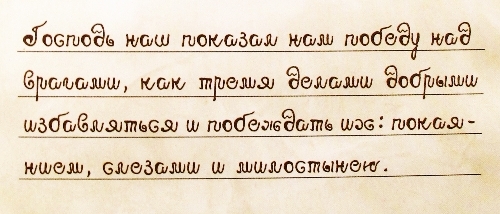 Господь наш показал нам победу над
врагами, как тремя делами добрыми
избавляться и побеждать их: покая-
нием, слезами и милостынею.